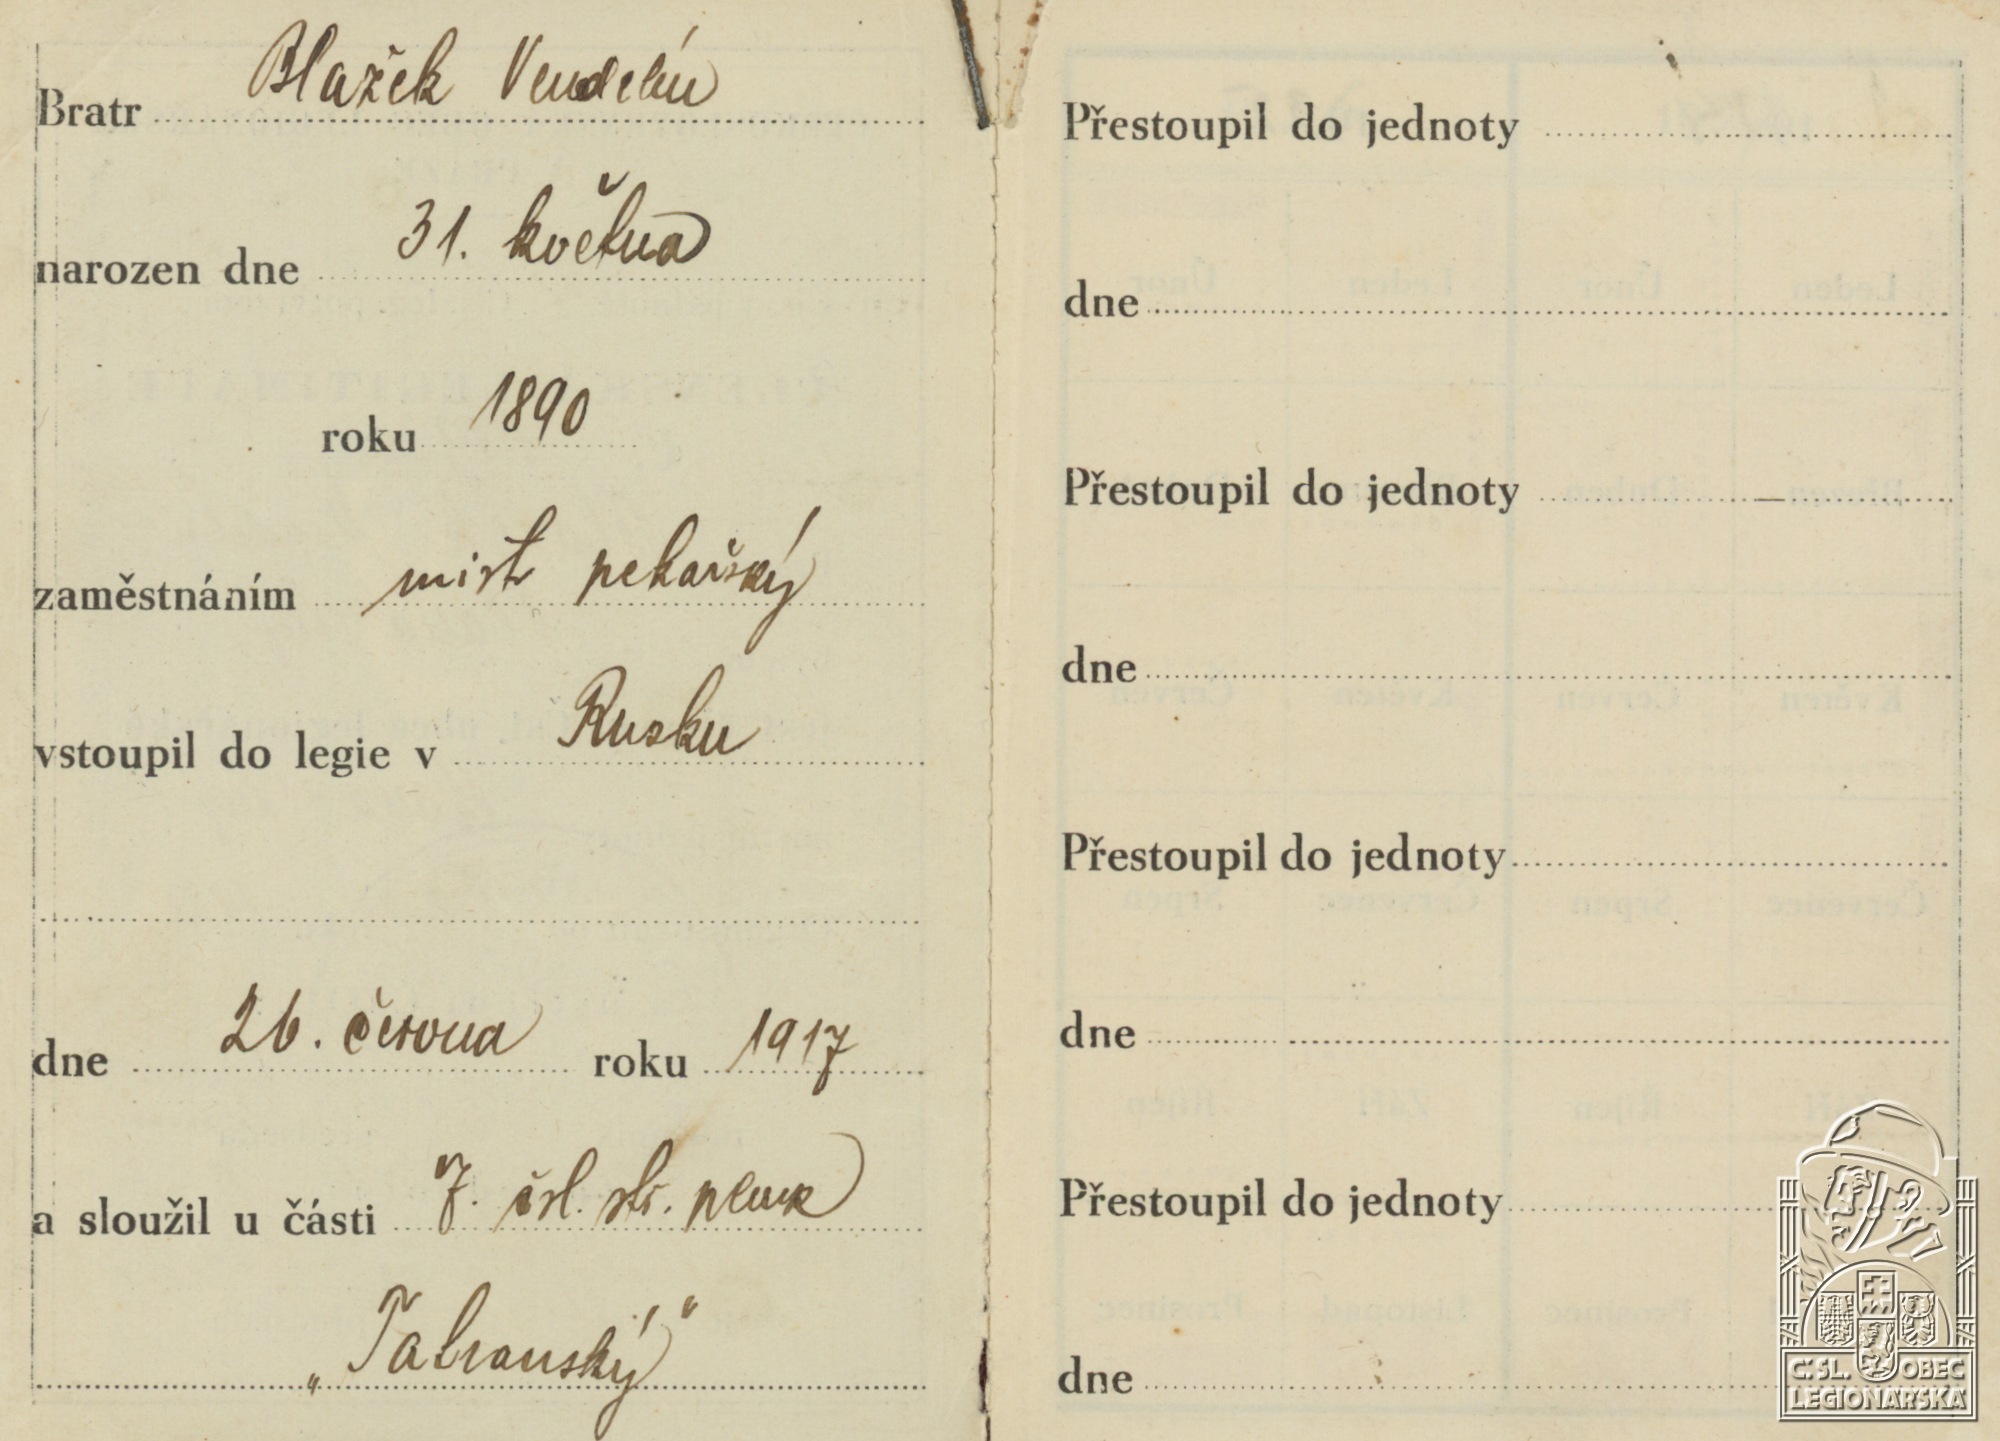 Bratr Blažek Vendelín
narozen dne 31. května
roku 1890
zaměstnáním mistr pekařský
vstoupil do legie v Rusku
dne 26. června roku 1917
a sloužil u části 7. čsl. stř. pluk
„Tatranský"
Přestoupil do jednoty
dne
Přestoupil do jednoty
dne
Přestoupil do jednoty
dne
Přestoupil do jednoty
dne
Č SL. OBEC
LEGIONÁŘSKÁ